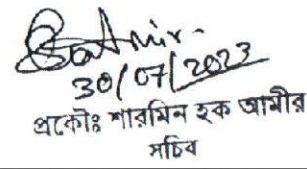 30/07/2023
প্রকৌঃ শারমিন হক আমীর
সচিব